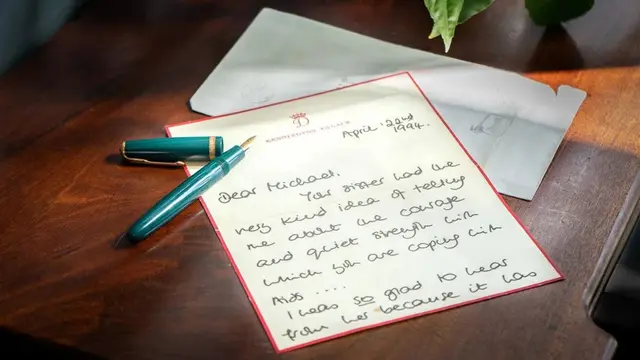 KENSINGTON PALACE
April 22nd
1994.
Dear Michael,
Your sister had the
very kind idea of telling
me about the courage
and quiet strength with
which you are coping with
Aids ....
I was so glad to hear
from her because it has